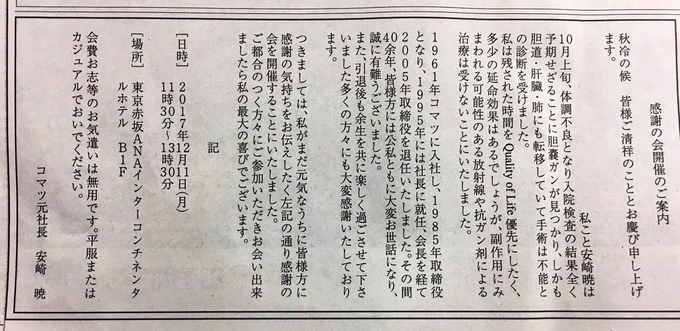 感謝の会開催のご案内
秋冷の候　皆様ご清祥のこととお慶び申し上げ
ます。
私こと安崎暁は
10月上旬、体調不良となり入院検査の結果全く
予期せざることに胆嚢ガンが見つかり、しかも
胆道・肝臓・肺にも転移していて手術は不能と
の診断を受けました。
私は残された時間をQuality of Life優先にしたく、
多少の延命効果はあるでしょうが、副作用にみ
まわれる可能性のある放射線や抗ガン剤による
治療は受けないことにいたしました。
1961年コマツに入社し、1985年取締役
となり、1995年には社長に就任、会長を経て
2005年取締役を退任いたしました。その間
40余年、皆様方には公私ともに大変お世話になり、
誠に有難うございました。
また、引退後も余生を共に楽しく過ごさせて下さ
いました多くの方々にも大変感謝いたしており
ます。
つきましては、私がまだ元気なうちに皆様方に
感謝の気持ちをお伝えしたく左記の通り感謝の
会を開催することにいたしました。
ご都合のつく方々にご参加いただきお会い出来
ましたら私の最大の喜びでございます。
記
［日時］　2017年12月11日（月）
11時30分～13時30分
［場所］　東京赤坂ANAインターコンチネンタ
ルホテル　B1F
会費お志等のお気遣いは無用です。平服または
カジュアルでおいでください。
コマツ元社長　安崎　暁